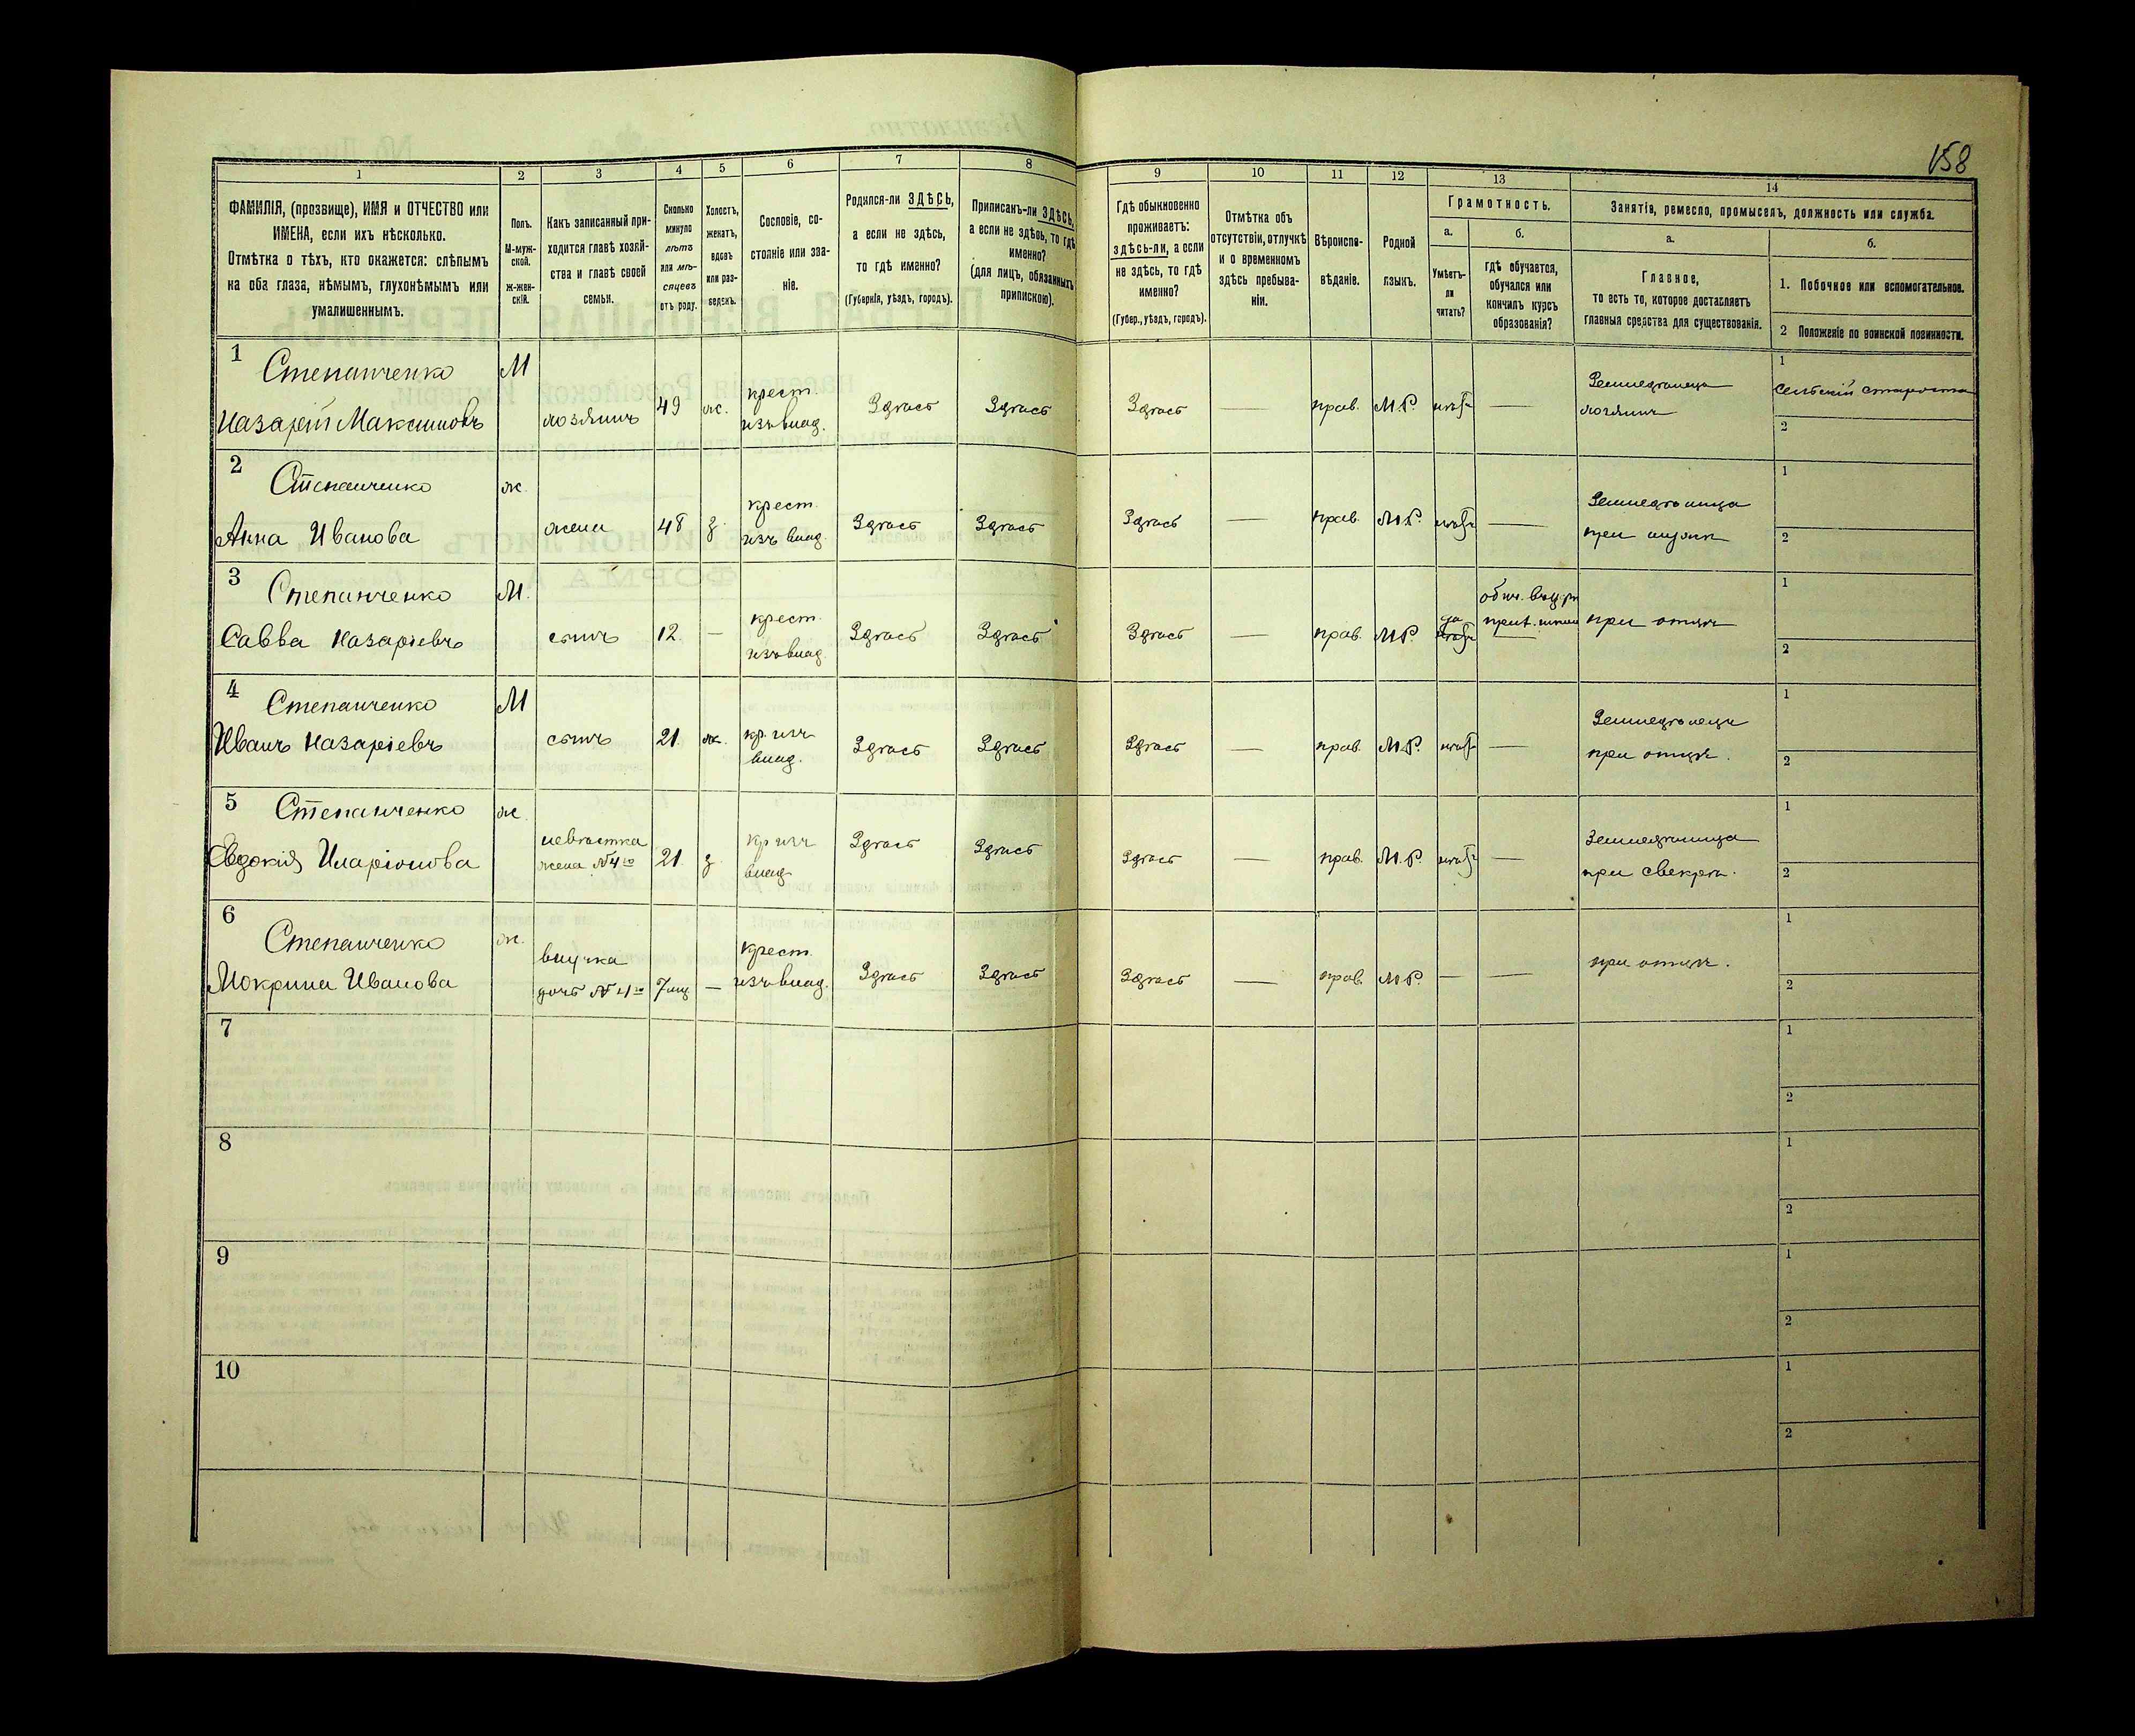 158
1
2
3
4
5
6
7
8
9
10
11
12
13
14
ФАМИЛІЯ, (прозвище), ИМЯ и ОТЧЕСТВО или
ИМЕНА, если ихъ нѣсколько.
Отмѣтка о тѣхъ, кто окажется: слѣпымъ
на оба глаза, нѣмымъ, глухонѣмымъ или
умалишеннымъ.
Полъ.
М-муж-
ской.
Ж-жен-
скій.
Какъ записанный при-
ходится главѣ хозяй-
ства и главѣ своей
семьи.
Сколько
минуло
лѣтъ
или мѣ-
сяцевъ
отъ роду.
Холостъ,
женатъ,
вдовъ
или раз-
веденъ.
Сословіе, со-
стояніе или зва-
ніе.
Родился-ли ЗДѢСЬ,
а если не здѣсь,
то гдѣ именно?
(Губернія, уѣздъ, городъ).
Приписанъ-ли ЗДѢСЬ,
а если не здѣсь, то гдѣ
именно?
(для лицъ, обязанныхъ
припискою).
Гдѣ обыкновенно
проживаетъ:
здѣсь-ли, а если
не здѣсь, то гдѣ
именно?
(Губер., уѣздъ, городъ).
Отмѣтка объ
отсутствіи, отлучкѣ
и о временномъ
здѣсь пребыва-
ніи.
Вѣроиспо-
вѣданіе.
Родной
языкъ.
Грамотность.
а.
Умѣетъ-
ли
читать?
б.
гдѣ обучается,
обучался или
кончилъ курсъ
образованія?
Занятіе, ремесло, промыселъ, должность или служба.
а.
Главное,
то есть то, которое доставляетъ
главныя средства для существованія.
б.
1. Побочное или вспомогательное.
2 Положеніе по воинской повинности.
1
Степанченко
Назарій Максимовъ
М
хозяинъ
49
ж.
крест.
изъ влад.
Здѣсь
Здѣсь
Здѣсь
—
прав.
М.Р.
нѣтъ
—
Земледѣлецъ
хозяинъ
1
сельскій староста
2
2
Степанченко
Анна Иванова
ж.
жена
48
з.
крест.
изъ влад.
Здѣсь
Здѣсь
Здѣсь
—
прав.
М.Р.
нѣтъ
—
Земледѣлица
при мужѣ
1
2
3
Степанченко
Савва Назаріевъ
М.
сынъ
12.
—
крест.
изъ влад.
Здѣсь
Здѣсь
Здѣсь
—
прав.
М.Р.
да
нѣтъ
при отцѣ
1
2
4
Степанченко
Иванъ Назаріевъ
М
сынъ
21.
ж.
кр. изъ
влад.
Здѣсь
Здѣсь
Здѣсь
—
прав.
М.Р.
нѣтъ
—
Земледѣлецъ
при отцѣ.
1
2
5
Степанченко
Евдокія Иларіонова
ж.
невѣстка
жена №4го
21.
з
кр изъ
влад
Здѣсь
Здѣсь
Здѣсь
—
прав.
М.Р.
нѣтъ
—
Земледѣлица
при свекрѣ.
1
2
6
Степанченко
Мокрина Иванова
ж.
внучка
дочь №4го
7 мц
—
крест.
изъ влад.
Здѣсь
Здѣсь
Здѣсь
—
прав.
М.Р.
—
—
при отцѣ.
1
2
7
1
2
8
1
2
9
1
2
10
1
2